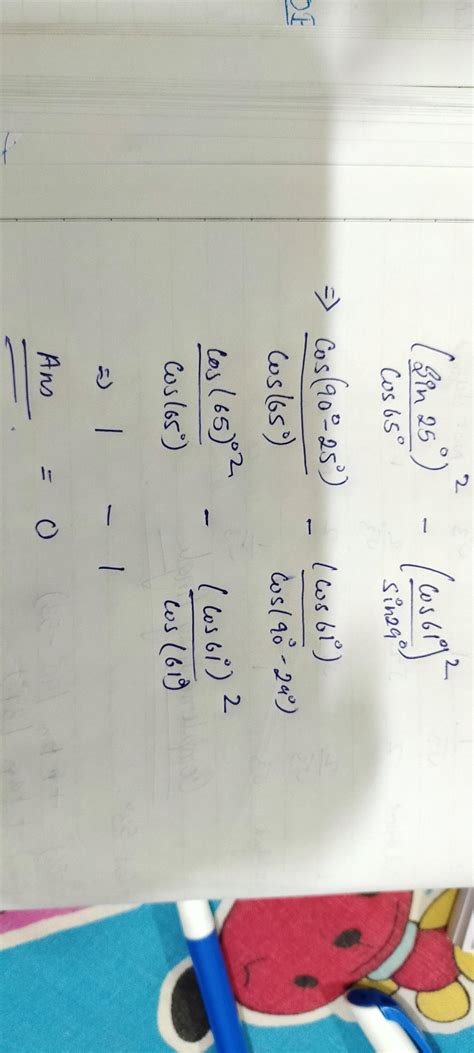 (Sin 25° / Cos 65°)² - (Cos 61° / Sin 29°)²
⇒ Cos(90° - 25°) / Cos(65°) - (Cos 61°) / Cos(90° - 29°)
Cos(65)°² / Cos(65°) - (Cos 61°)² / Cos(61°)
⇒ 1 - 1
Ans = 0